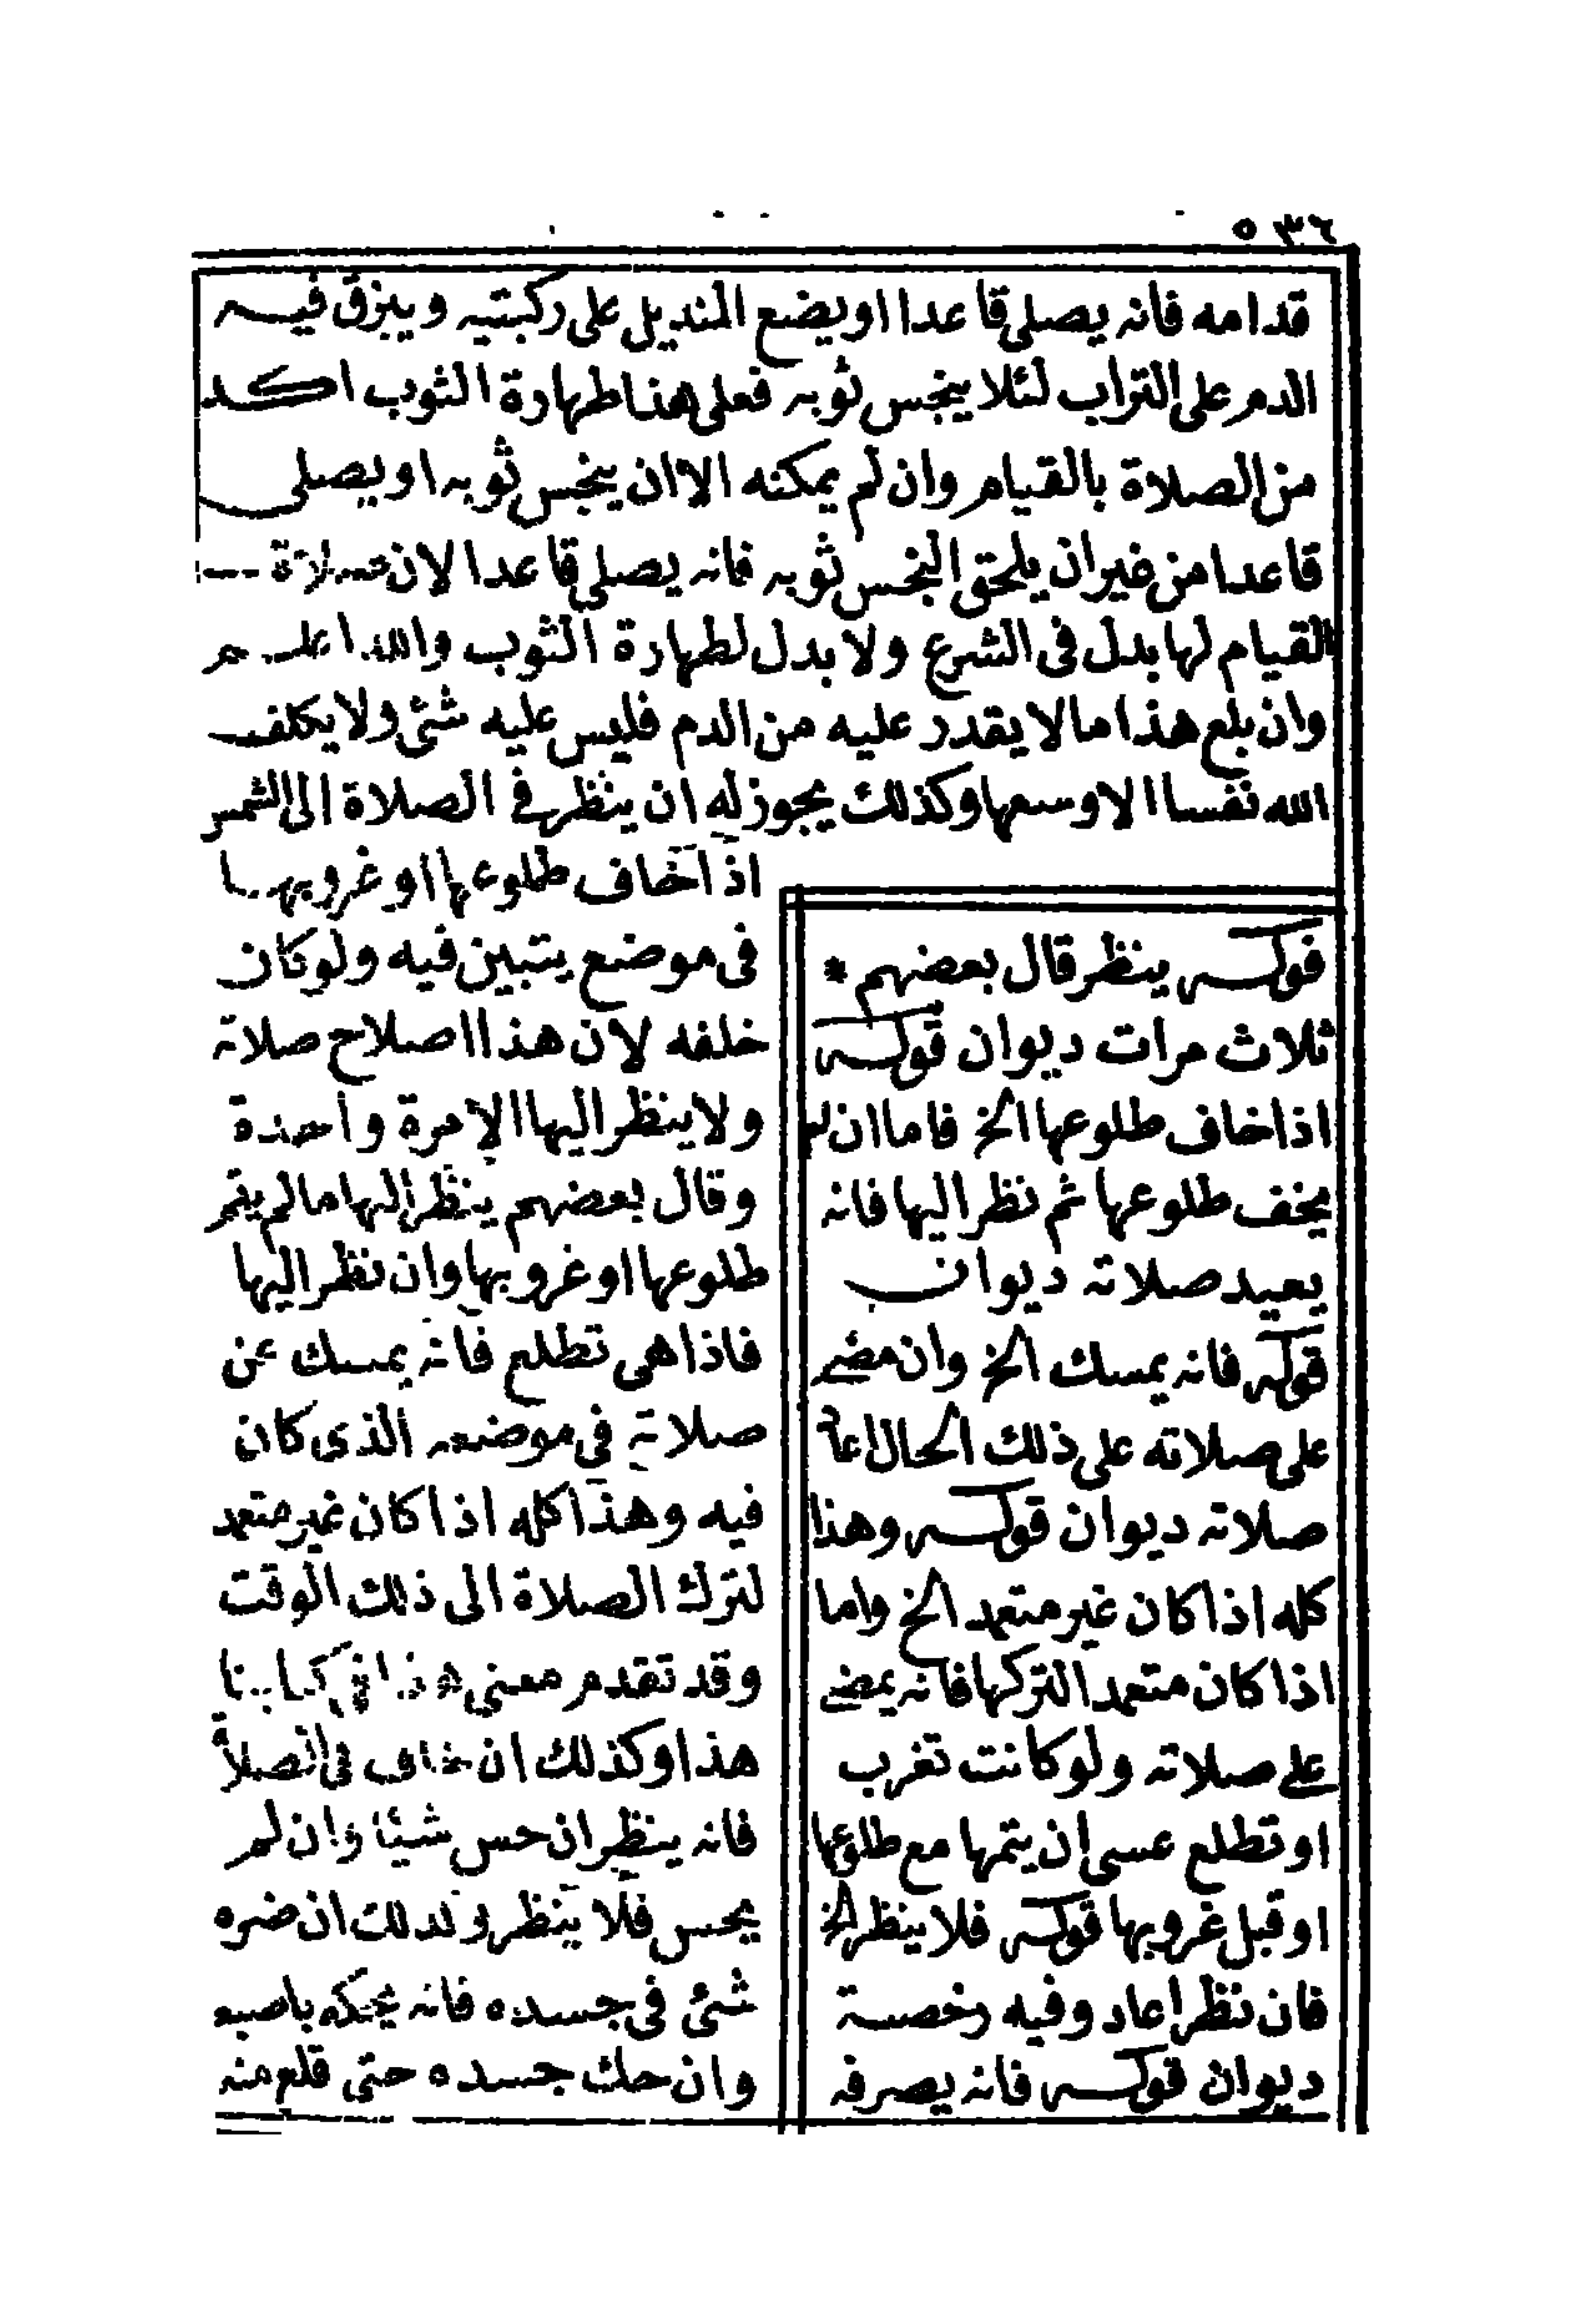 ٥٣٦
قدامه فانه يصلى قاعدا او يضع المنديل على ركبتيه ويبزق فيه
الدم على التراب لئلا ينجس ثوبه فعلى هذا طهارة الثوب اكد
من الصلاة بالقيام وان لم يمكنه الا ان ينجس ثوبه او يصلى
قاعدا من غير ان يلحق النجس ثوبه فانه يصلى قاعدا لان صلاة
القيام لها بدل فى الشرع ولا بدل لطهارة الثوب والله اعلم
وان بلع هذا ما لا يقدر عليه من الدم فليس عليه شئ ولا يكلف
الله نفسا الا وسعها وكذلك يجوز له ان ينظر فى الصلاة الى الشمس
اذا خاف طلوعها او غروبها
فى موضع يتبين فيه ولو كان
خلفه لان هذا اصلاح صلاته
ولا ينظر اليها الا مرة واحدة
وقال بعضهم ينظر اليها ما لم يتم
طلوعها او غروبها وان نظر اليها
فاذا هى تطلع فانه يمسك عن
صلاته فى موضعه الذى كان
فيه وهذا كله اذا كان غير متعمد
لترك الصلاة الى ذلك الوقت
وقد تقدم معنى هذا فى كتابنا
هذا وكذلك ان خاف فى الصلاة
فانه ينظر ان حس شيئا وان لم
يحس فلا ينظر وكذلك ان ضره
شئ فى جسده فانه يحكه باصبعه
وان حك جسده حتى قلع منه
قوله ينظر قال بعضهم *
ثلاث مرات ديوان قوله
اذا خاف طلوعها الخ فاما ان لم
يخف طلوعها ثم نظر اليها فانه
يعيد صلاته ديوان
قوله فانه يمسك الخ وان مضى
على صلاته على ذلك الحال اعاد
صلاته ديوان قوله وهذا
كله اذا كان غير متعمد الخ واما
اذا كان متعمدا لتركها فانه يمضى
على صلاته ولو كانت تغرب
او تطلع عسى ان يتمها مع طلوعها
او قبل غروبها قوله فلا ينظر الخ
فان نظر اعاد وفيه رخصة
ديوان قوله فانه يصرفه